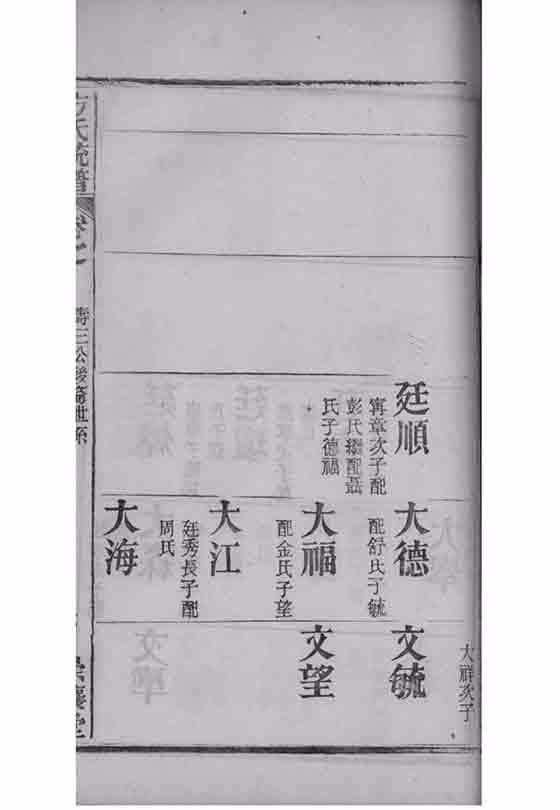 大祥次子
廷順
甯章次子配
彭氏繼配聶
氏子德福
大德
配舒氏子毓
文毓
大福
配金氏子望
文望
大江
廷秀長子配
周氏
大海
方氏統譜
卷七
壽三公後裔世系